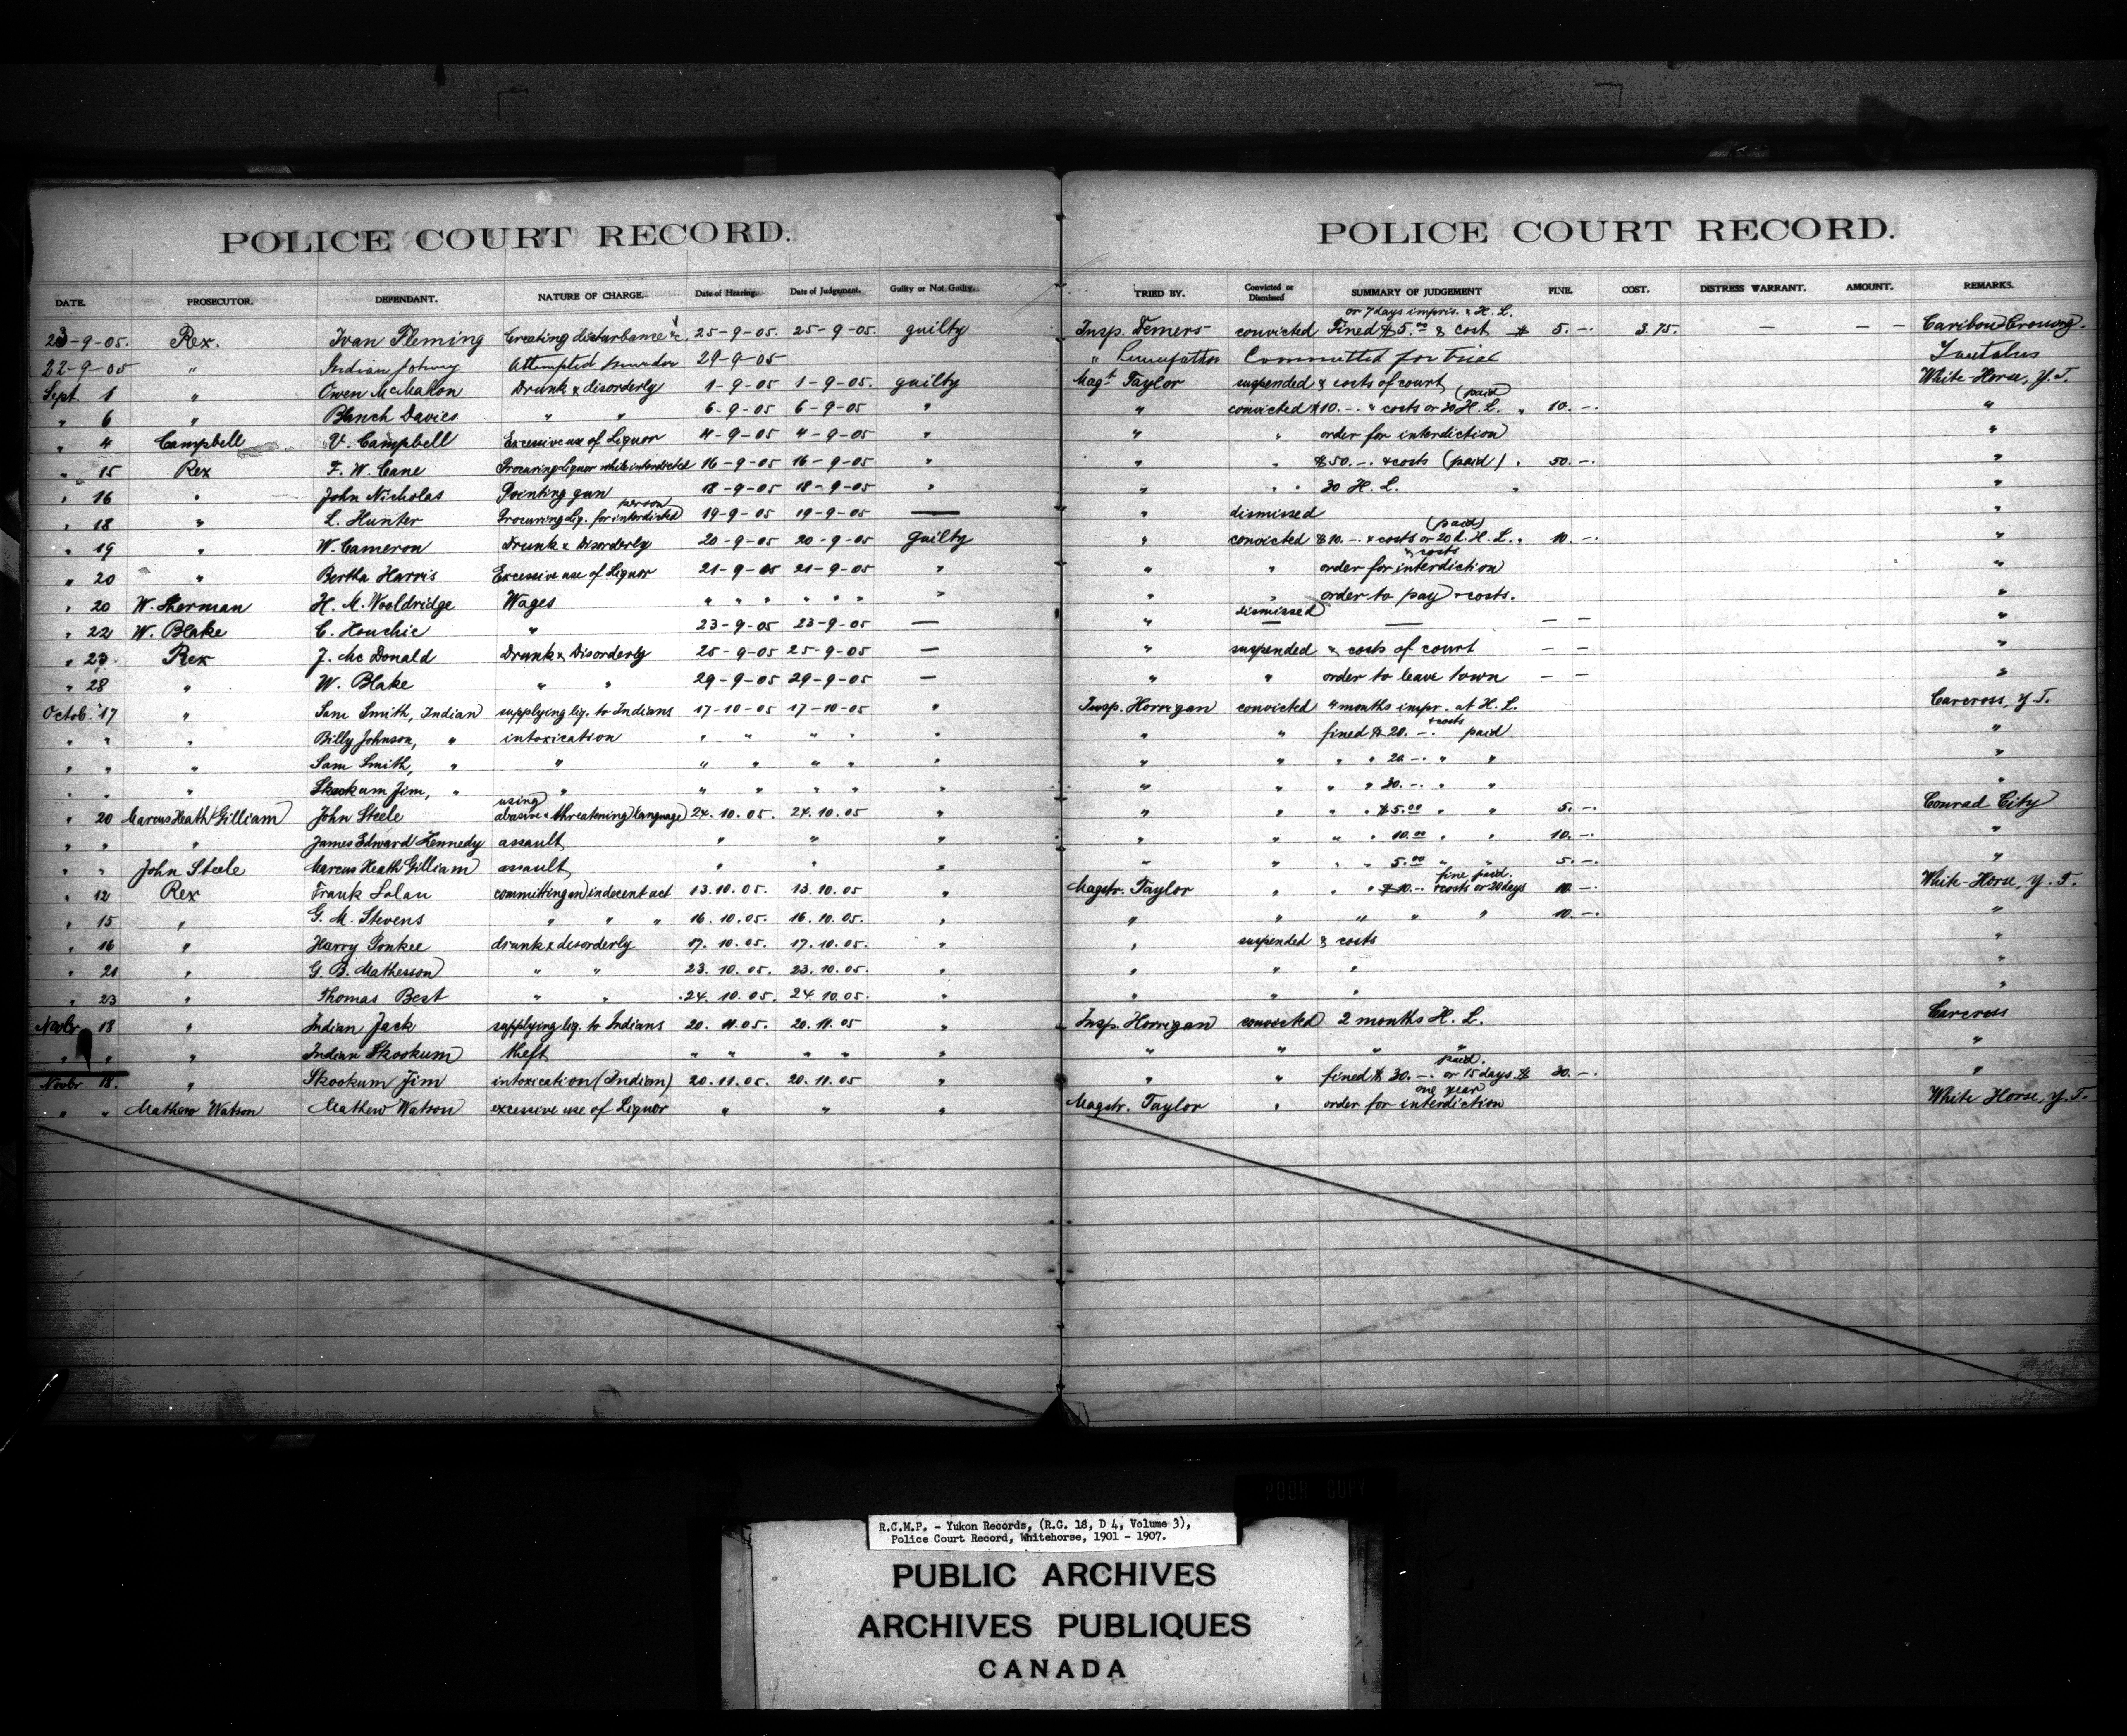 POLICE COURT RECORD. POLICE COURT RECORD.
DATE. PROSECUTOR. DEFENDANT. NATURE OF CHARGE. Date of Hearing. Date of Judgement. Guilty or Not Guilty. TRIED BY. Convicted or Dismissed SUMMARY OF JUDGEMENT FINE. COST. DISTRESS WARRANT. AMOUNT. REMARKS.
23-9-05. Rex. Ivan Fleming Creating disturbance &c. 25-9-05. 25-9-05. guilty Insp. Demers convicted Fined $5.00 & cost or 7 days impris. & H. L. $ 5.-. 3.75. — — — Caribou-Crossing.
22-9-05 " Indian Johnny Attempted murder 29-9-05 " Committed for trial Tantalus
Sept. 1 " Owen McMahon Drunk & disorderly 1-9-05 1-9-05. guilty Magt Taylor suspended & costs of court White-Horse, Y.T.
" 6 " Blanch Davies " " 6-9-05 6-9-05 " " convicted $10.-. & costs or 30 H. L. (paid) " 10.-. "
" 4 Campbell V. Campbell Excessive use of Liquor 4-9-05 4-9-05 " " " order for interdiction "
" 15 Rex F. W. Cane Procuring Liquor while interdicted 16-9-05 16-9-05 " " " $50.-. & costs (paid) " 50.-. "
" 16 " John Nicholas Pointing gun 18-9-05 18-9-05 " " " " 30 H. L. " "
" 18 " L. Hunter Procuring Liq. for interdicted person 19-9-05 19-9-05 — " dismissed "
" 19 " W. Cameron Drunk & Disorderly 20-9-05 20-9-05 guilty " convicted $10.-. & costs or 20 d. H. L. (paid) " 10.-. "
" 20 " Bertha Harris Excessive use of Liquor 21-9-05 21-9-05 " " " order for interdiction & costs "
" 20 W. Sherman H. M. Wooldridge Wages " " " " " " " " " order to pay & costs. "
" 22 W. Blake C. Houchie " 23-9-05 23-9-05 — " dismissed — — — — "
" 23. Rex J. McDonald Drunk & Disorderly 25-9-05 25-9-05 — " suspended & costs of court — — "
" 28 " W. Blake " " 29-9-05 29-9-05 — " " order to leave town — — "
Octob. 17 " Sam Smith, Indian supplying liq. to Indians 17-10-05 17-10-05 " Insp. Horrigan convicted 4 months impr. at H. L. Carcross, Y.T.
" " " Billy Johnson, " intoxication " " " " " " " fined $20.-. & costs paid "
" " " Sam Smith, " " " " " " " " " " " 20.-. " " "
" " " Skookum Jim, " " " " " " " " " " " 30.-. " " "
" 20 Marcus Heath Gilliam John Steele using abusive & threatening language 24.10.05. 24.10.05. " " " " " $5.00 " " 5.-. Conrad City
" " " James Edward Kennedy assault " " " " " " " 10.00 " " 10.-. "
" " John Steele Marcus Heath Gilliam assault " " " " " " " 5.00 " " 5.-. "
" 12 Rex Frank Lalau committing an indecent act 13.10.05. 13.10.05. " Magstr. Taylor " " " $10.-. & costs or 20 days fine paid. 10.-. White-Horse, Y.T.
" 15 " G. M. Stevens " " " 16.10.05. 16.10.05. " " " " " " 10.-. "
" 16 " Harry Ponkee drunk & disorderly 17.10.05. 17.10.05. " " suspended & costs "
" 21 " G. B. Mathesson " " 23.10.05. 23.10.05. " " " " "
" 23 " Thomas Best " " 24.10.05. 24.10.05. " " " " "
Novbr 18 " Indian Jack supplying liq. to Indians 20.11.05. 20.11.05 " Insp. Horrigan convicted 2 months H. L. Carcross
" " " Indian Skookum theft " " " " " " " " " "
Novbr 18. " Skookum Jim intoxication (Indian) 20.11.05. 20.11.05 " " " fined $30.-. or 15 days paid. $ 30.-. "
" " Mathew Watson Mathew Watson excessive use of Liquor " " " Magstr. Taylor " order for interdiction one year White Horse, Y.T.
R.C.M.P. - Yukon Records, (R.G. 18, D 4, Volume 3),
Police Court Record, Whitehorse, 1901 - 1907.
PUBLIC ARCHIVES
ARCHIVES PUBLIQUES
CANADA